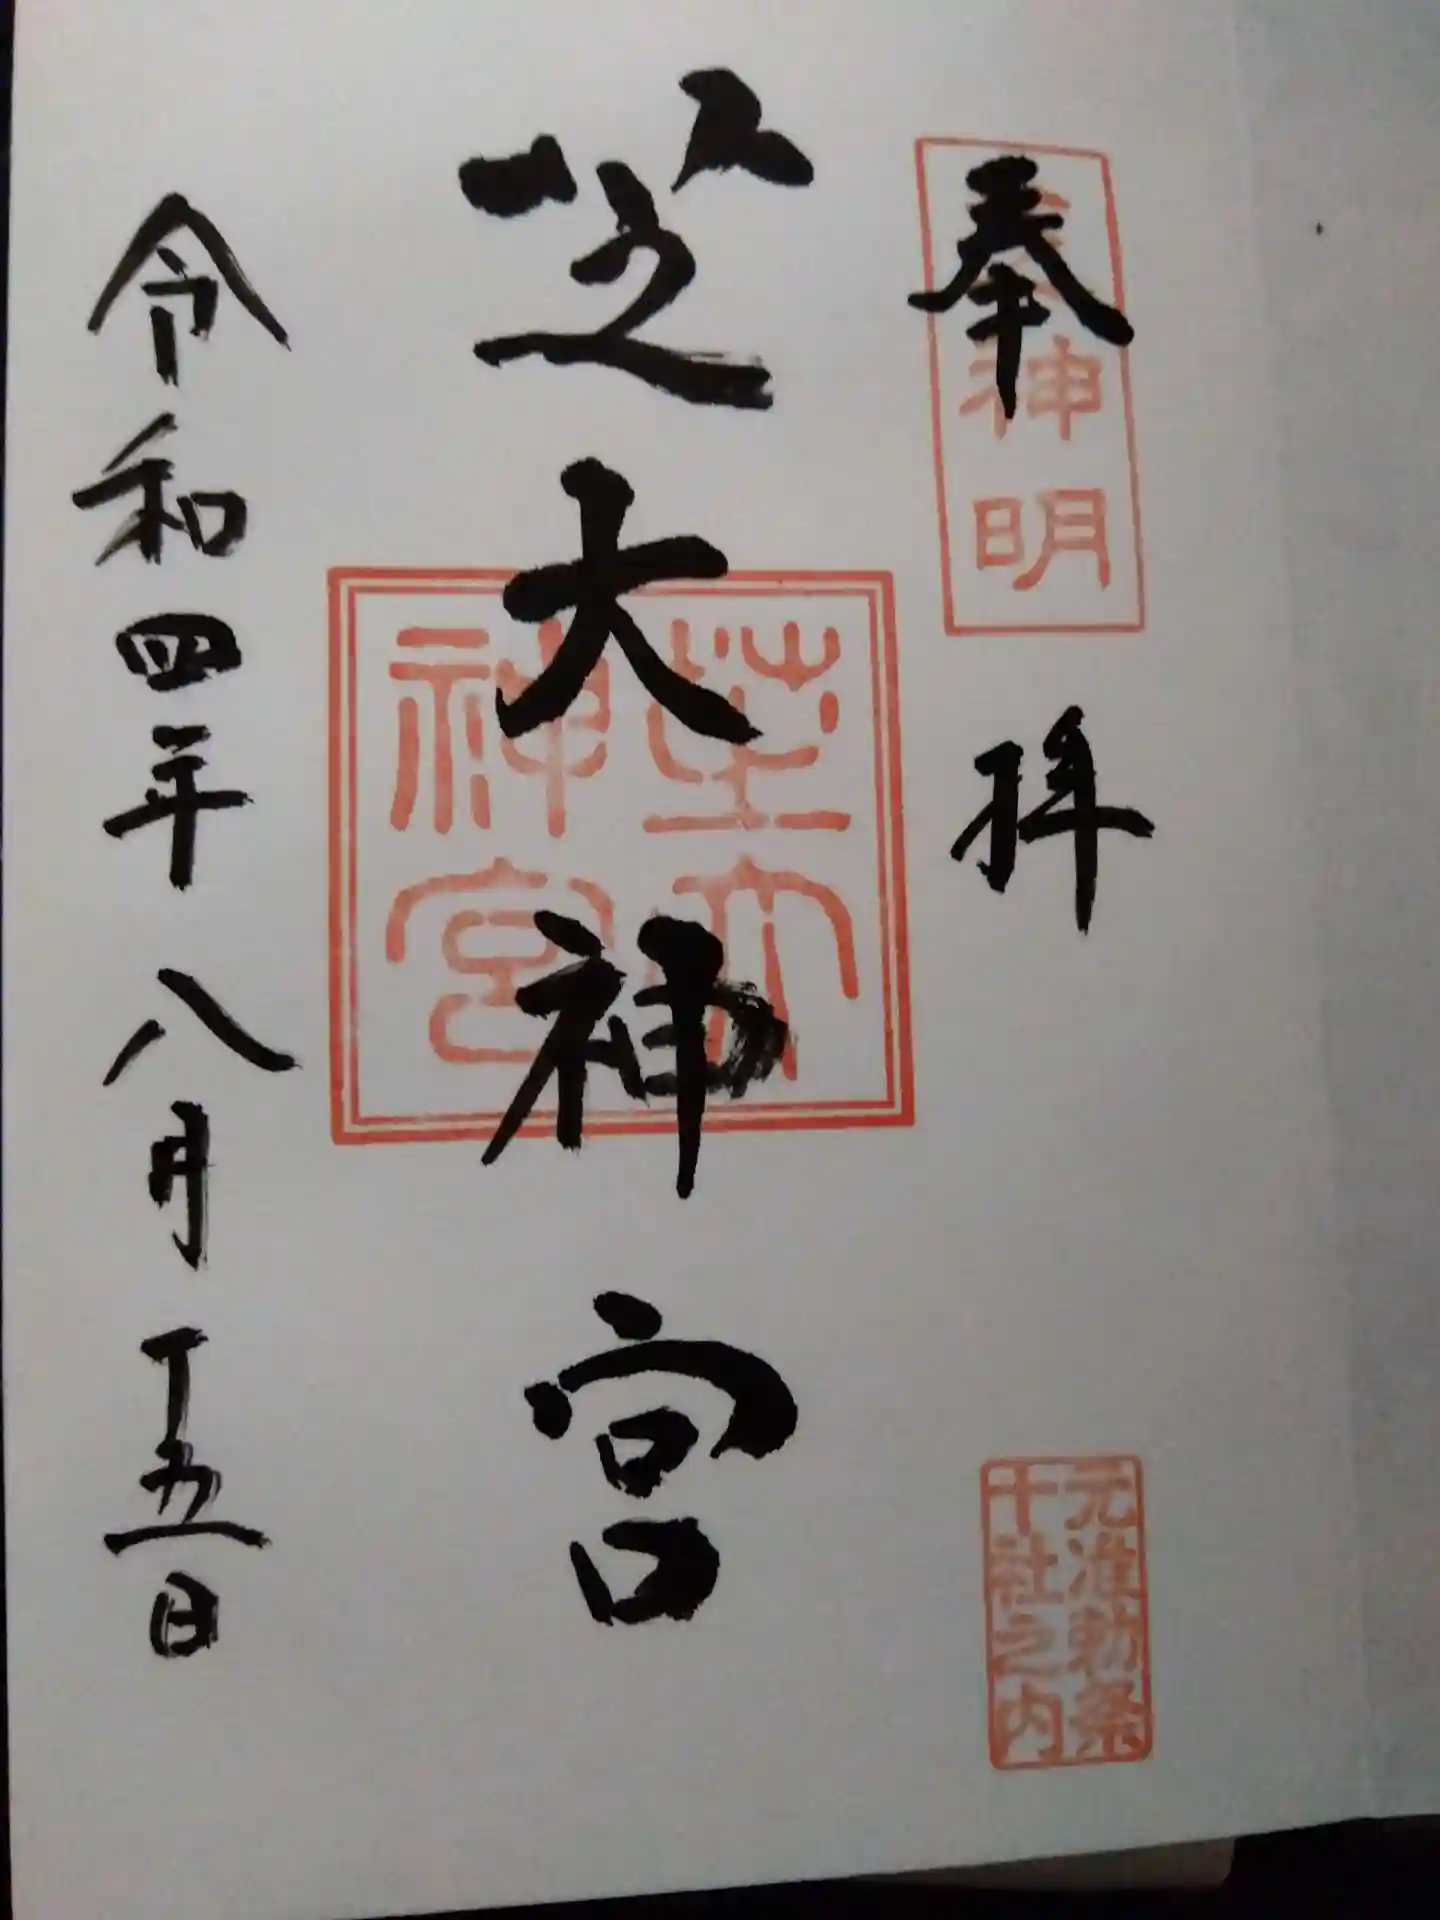 奉拝
神明
元准勅祭
十社之内
芝大神宮
芝大
神宮
令和四年八月十五日